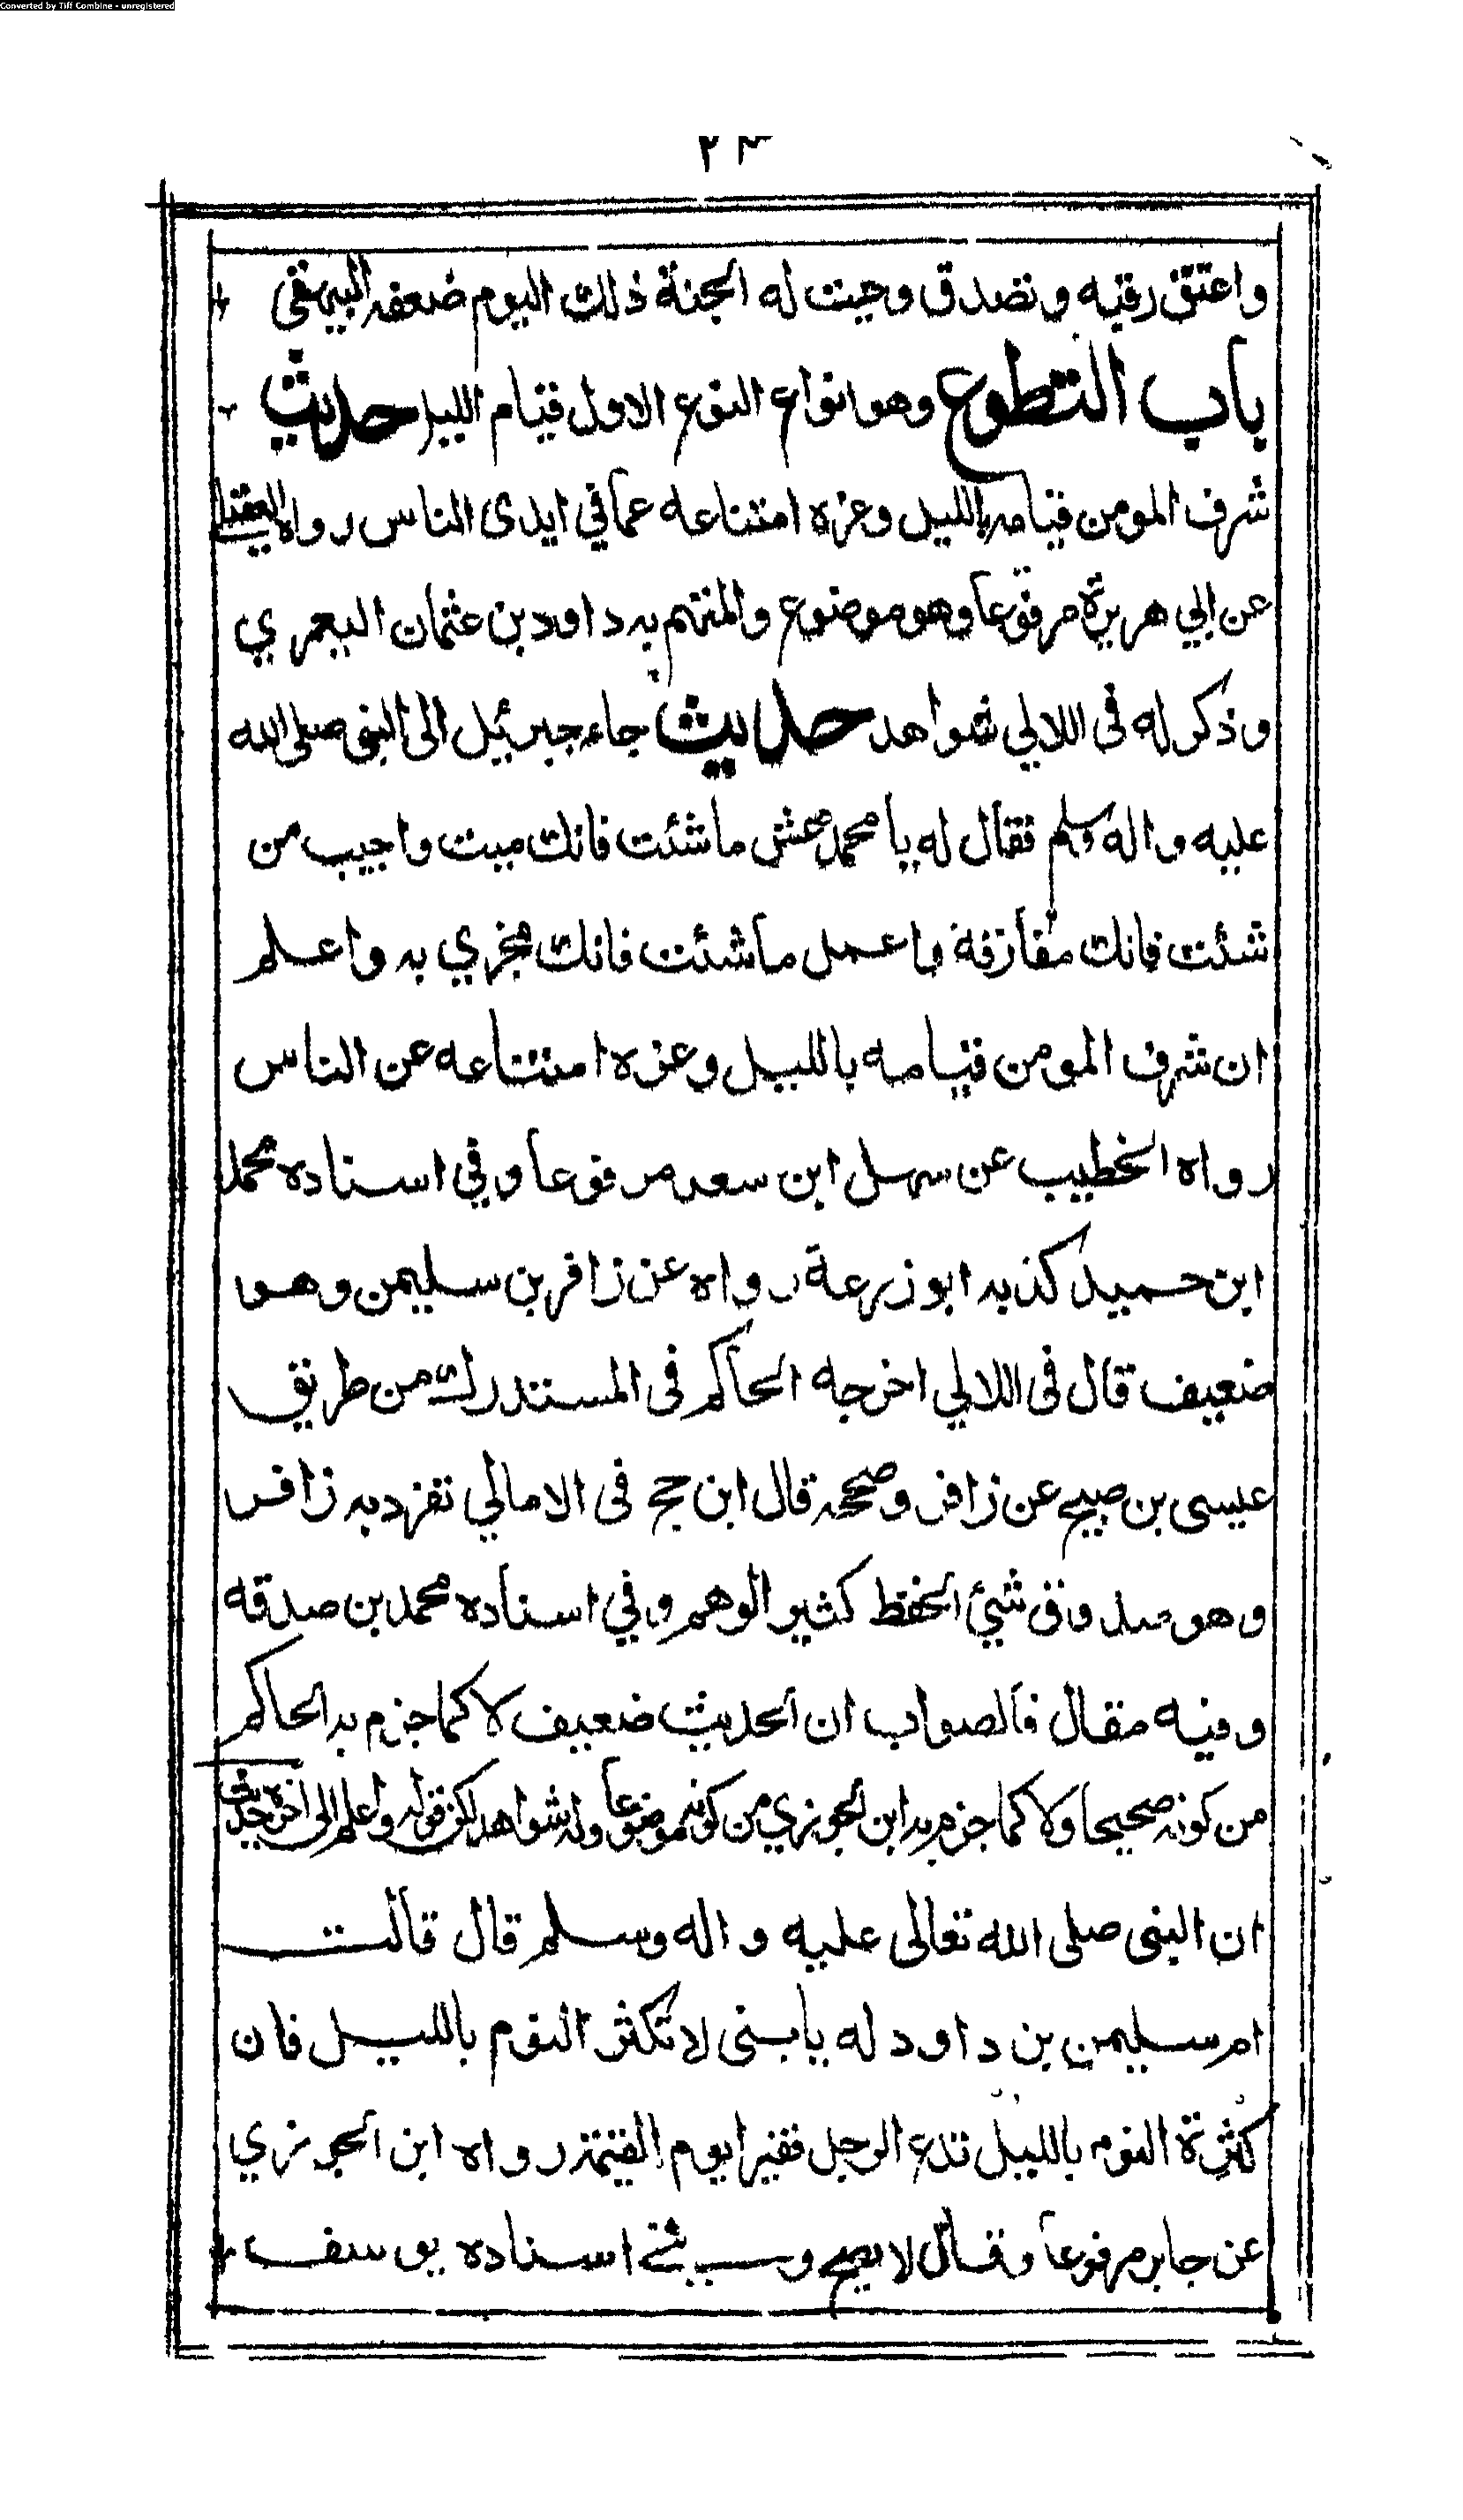 Converted by Tiff Combine - unregistered
٢٣
واعتق رقبه وتصدق وجبت له الجنة ذلك اليوم ضعفه البيهقي
باب التطوع وهو انواع النوع الاول قيام الليل حديث
شرف المومن قيامه بالليل وعزه امتناعه عما في ايدى الناس رواه العقيلي
عن ابي هريرة مرفوعا وهو موضوع والمتهم به داود بن عثمان الثغري
وذكر له فى اللالي شواهد حديث جاء جبرئيل الى النبى صلى الله
عليه واله وسلم فقال له يا محمد عش ما شئت فانك ميت واحبب من
شئت فانك مفارقة واعمل ما شئت فانك مجزي به واعلم
ان شرف المومن قيامه بالليل وعزه امتناعه عن الناس
رواه الخطيب عن سهل ابن سعد مرفوعا وفي اسناده محمد
ابن حميد كذبه ابو زرعة رواه عن زافر بن سليمن وهو
ضعيف قال فى اللالي اخرجه الحاكم فى المستدرك من طريق
عيسى بن صبيح عن زافر وصححه قال ابن حجر فى الامالي تفرد به زافر
وهو صدوق سئ الحفظ كثير الوهم وفي اسناده محمد بن صدقه
وفيه مقال فالصواب ان الحديث ضعيف لا كما جزم به الحاكم
من كونه صحيحا ولا كما جزم به ابن الجوزي من كونه موضوعا وله شواهد لكن قوله واعلم الى اخره حديث
ان النبى صلى الله تعالى عليه واله وسلم قال قالت
ام سليمن بن داود له يابنى لا تكثر النوم بالليل فان
كثرة النوم بالليل تدع الرجل فقيرا يوم القيمة رواه ابن الجوزي
عن جابر مرفوعا وقال لا يصح وسيئ اسناده يوسف